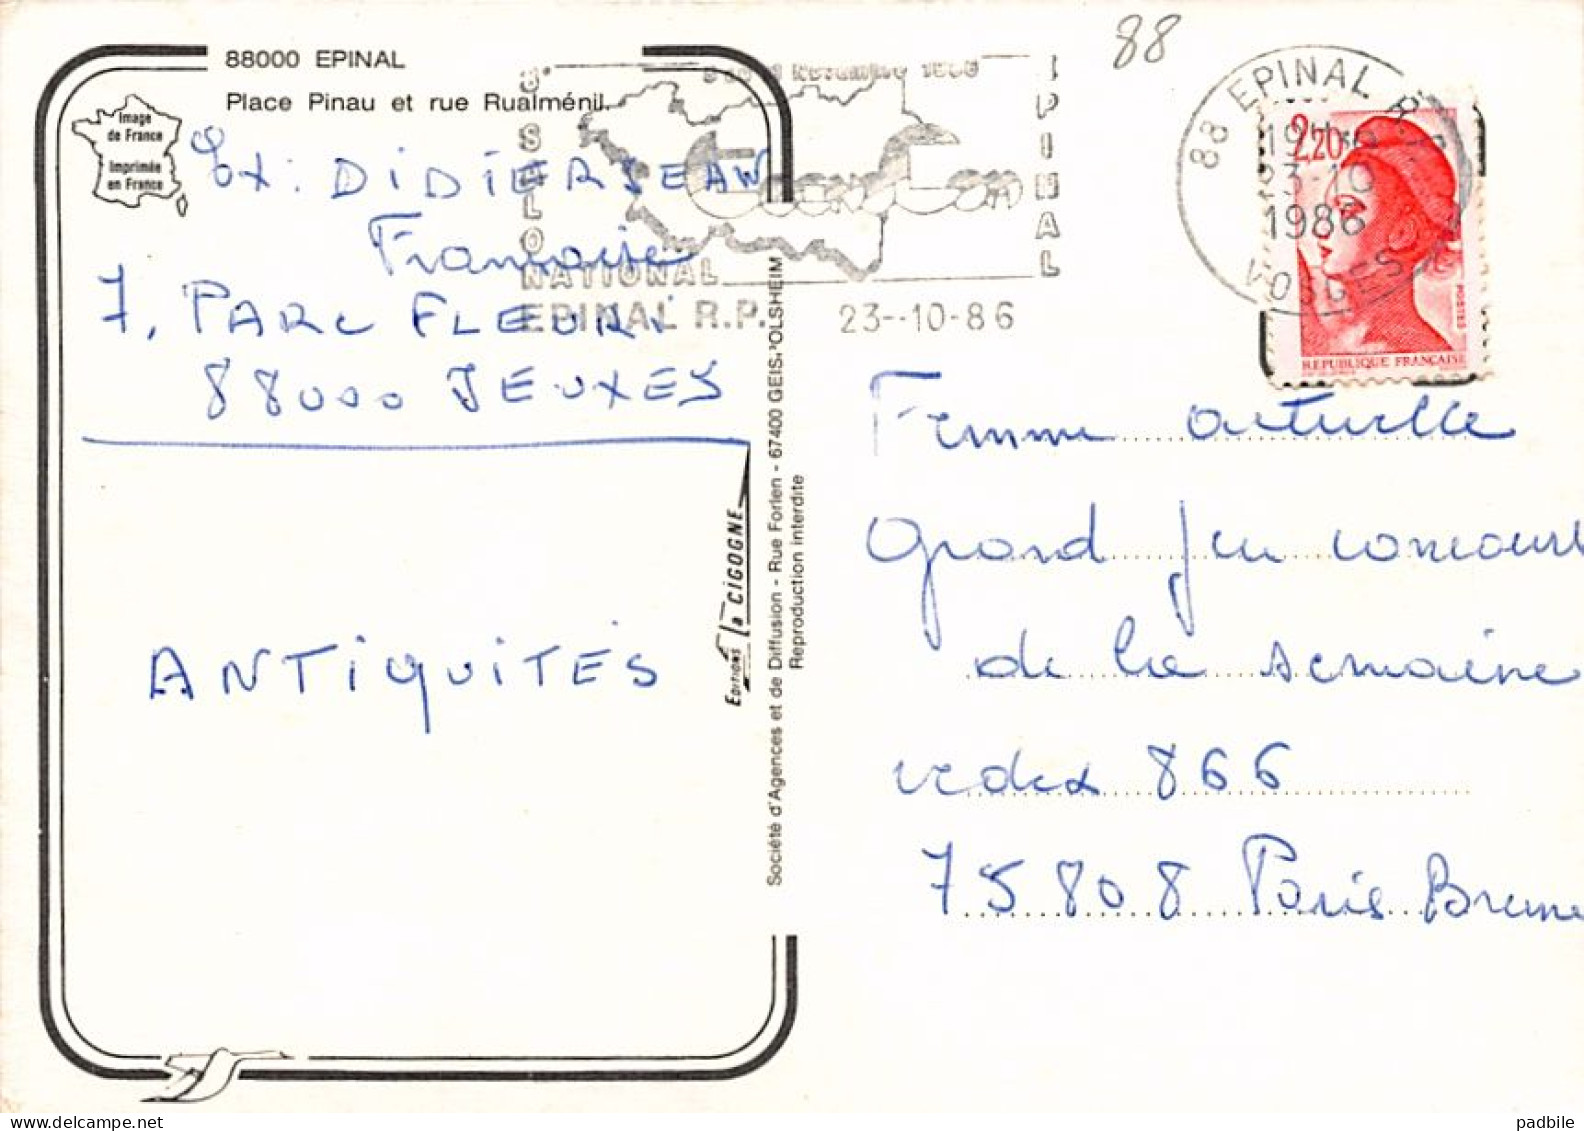 88000 EPINAL
Place Pinau et rue Rualménil.
Image
de France
Imprimée
en France
Ex: DIDIERJEAN
Francoise
7, PARC FLEURI
88000 JEUXEY
ANTIQUITÉS
EDITIONS la CIGOGNE
Société d'Agences et de Diffusion - Rue Forlen - 67400 GEISPOLSHEIM
Reproduction interdite
8e SALON
NATIONAL
1986
EPINAL
EPINAL R.P. 23-10-86
88
88 EPINAL R.P.
23-10
1986
VOSGES
2,20
POSTES
REPUBLIQUE FRANÇAISE
Femme actuelle
Grand Jeu concours
de la semaine
cedex 866
75808 Paris Brune
padbile